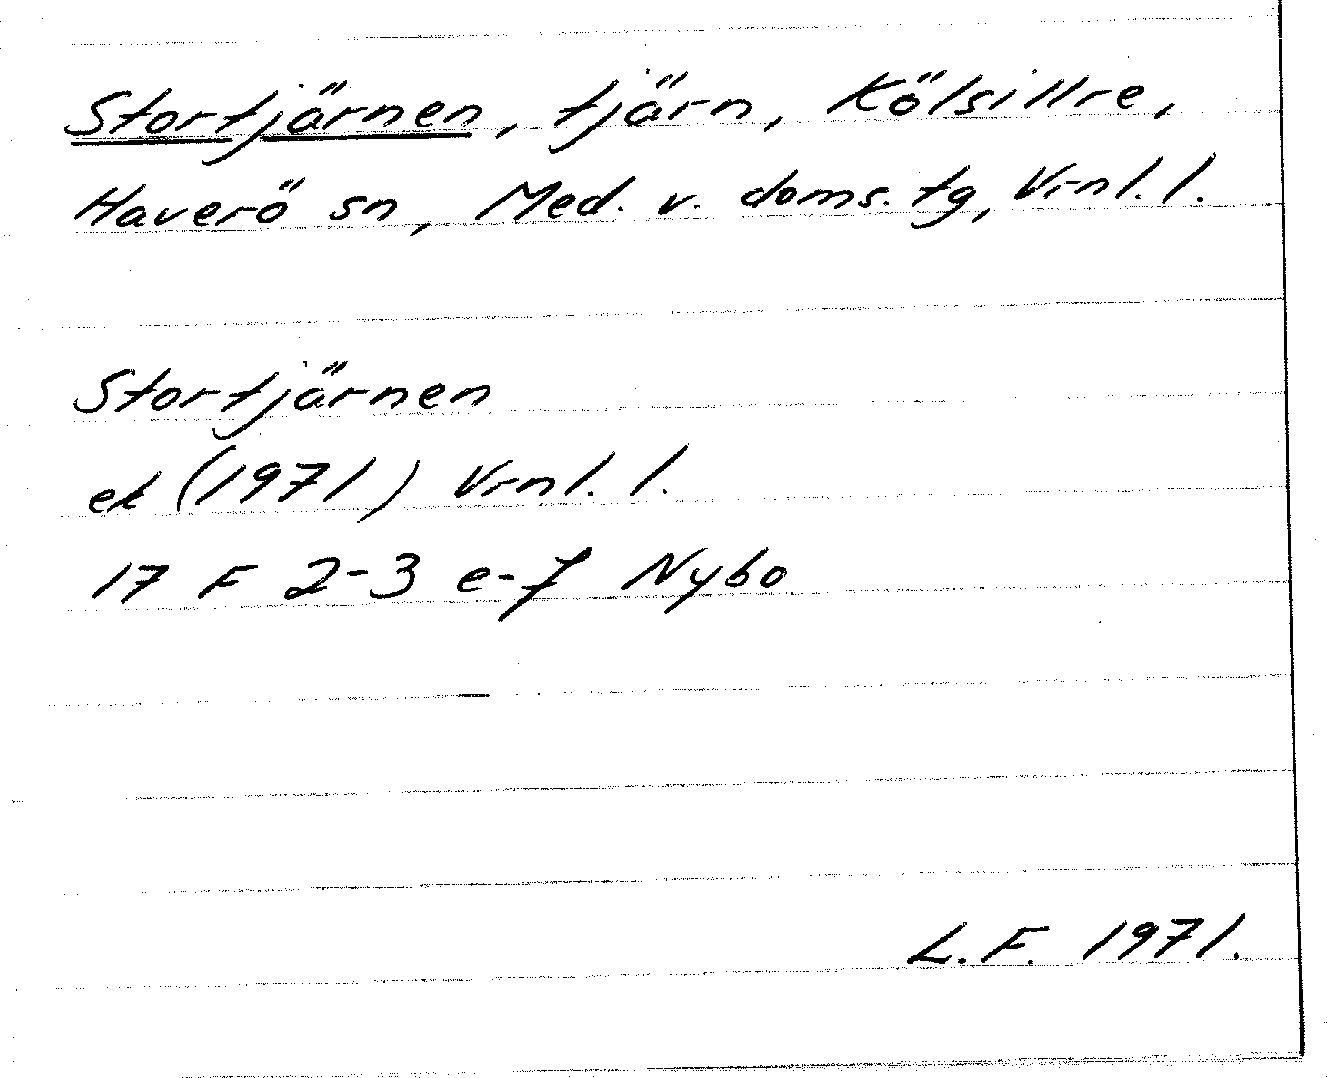 Stortjärnen, tjärn, Kölsillre,
Haverö sn, Med. v. doms. tg, Vrnl. l.
Stortjärnen
ek (1971) Vrnl. l.
17 F 2-3 e-f Nybo
L.F. 1971.